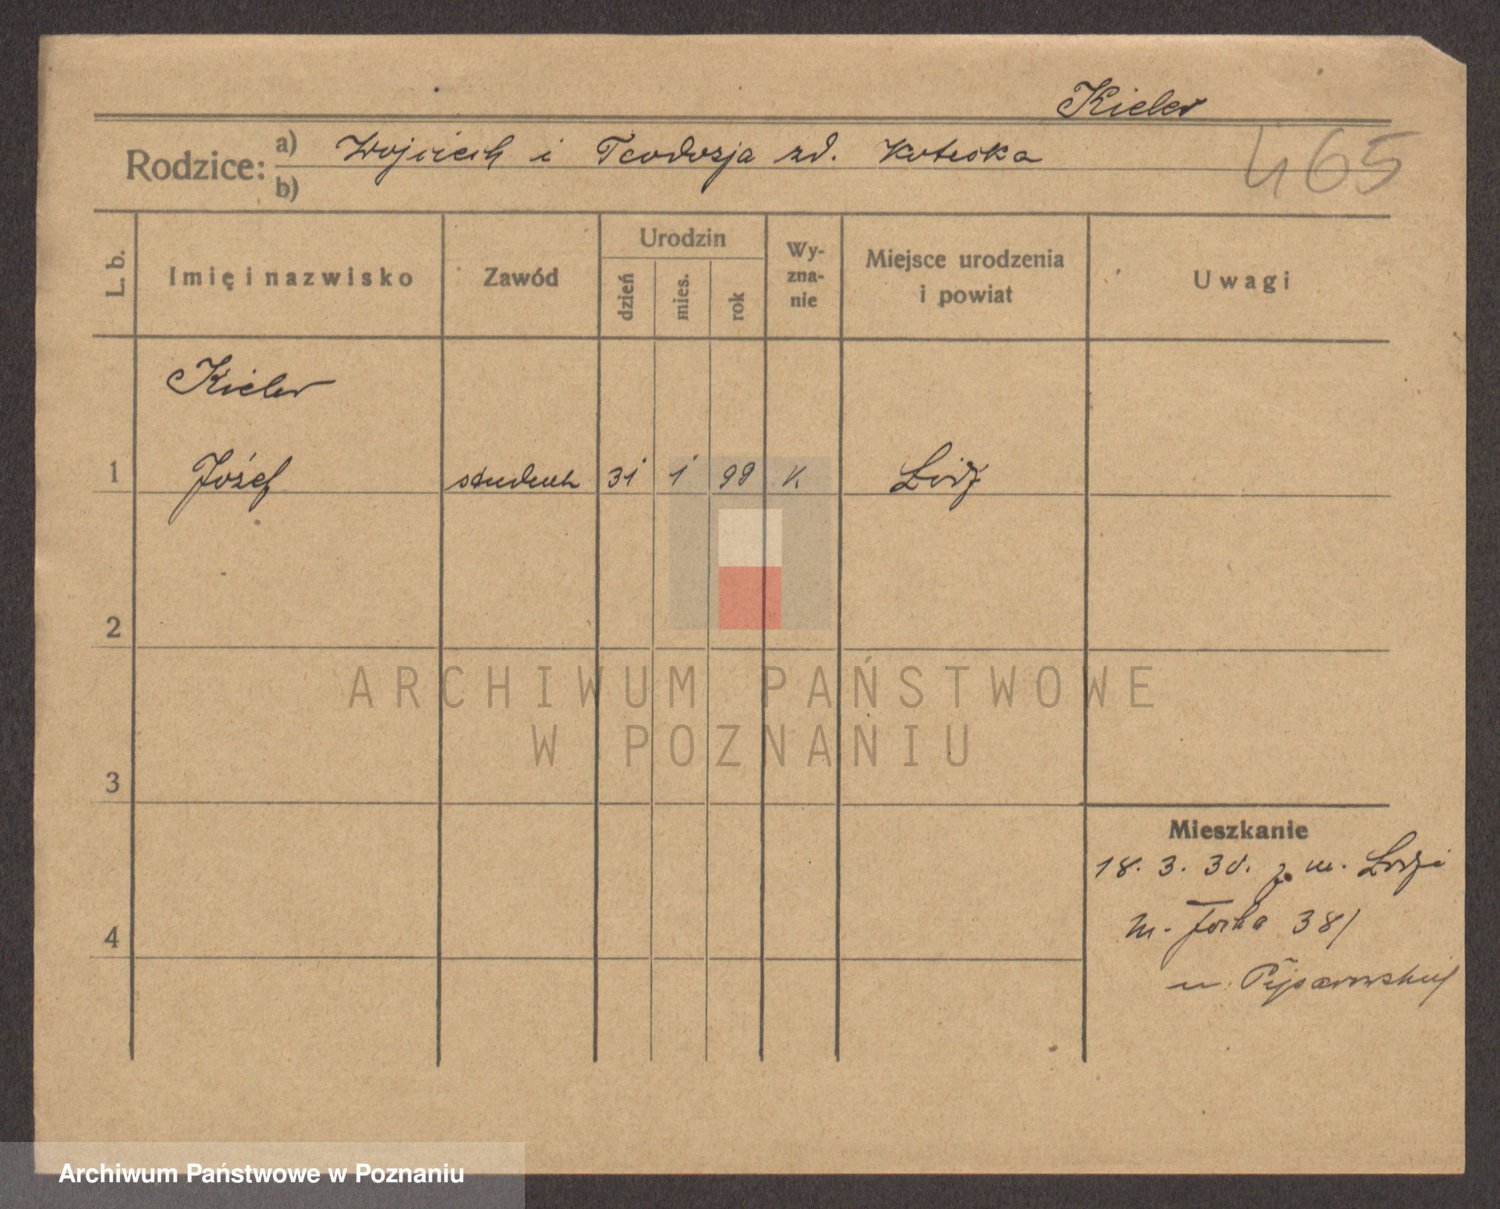 Kieler
Rodzice: a) Wojciech i Teodozja zd. Koteska
b)
465
L. b.
Imię i nazwisko
Zawód
Urodzin
dzień
mies.
rok
Wy-
zna-
nie
Miejsce urodzenia
i powiat
Uwagi
Kieler
1 Józef student 31 1 99 k. Łódź
2
3
4
ARCHIWUM PAŃSTWOWE
W POZNANIU
Mieszkanie
18. 3. 30. z m. Łodzi
M. Focha 38/
u.
Archiwum Państwowe w Poznaniu